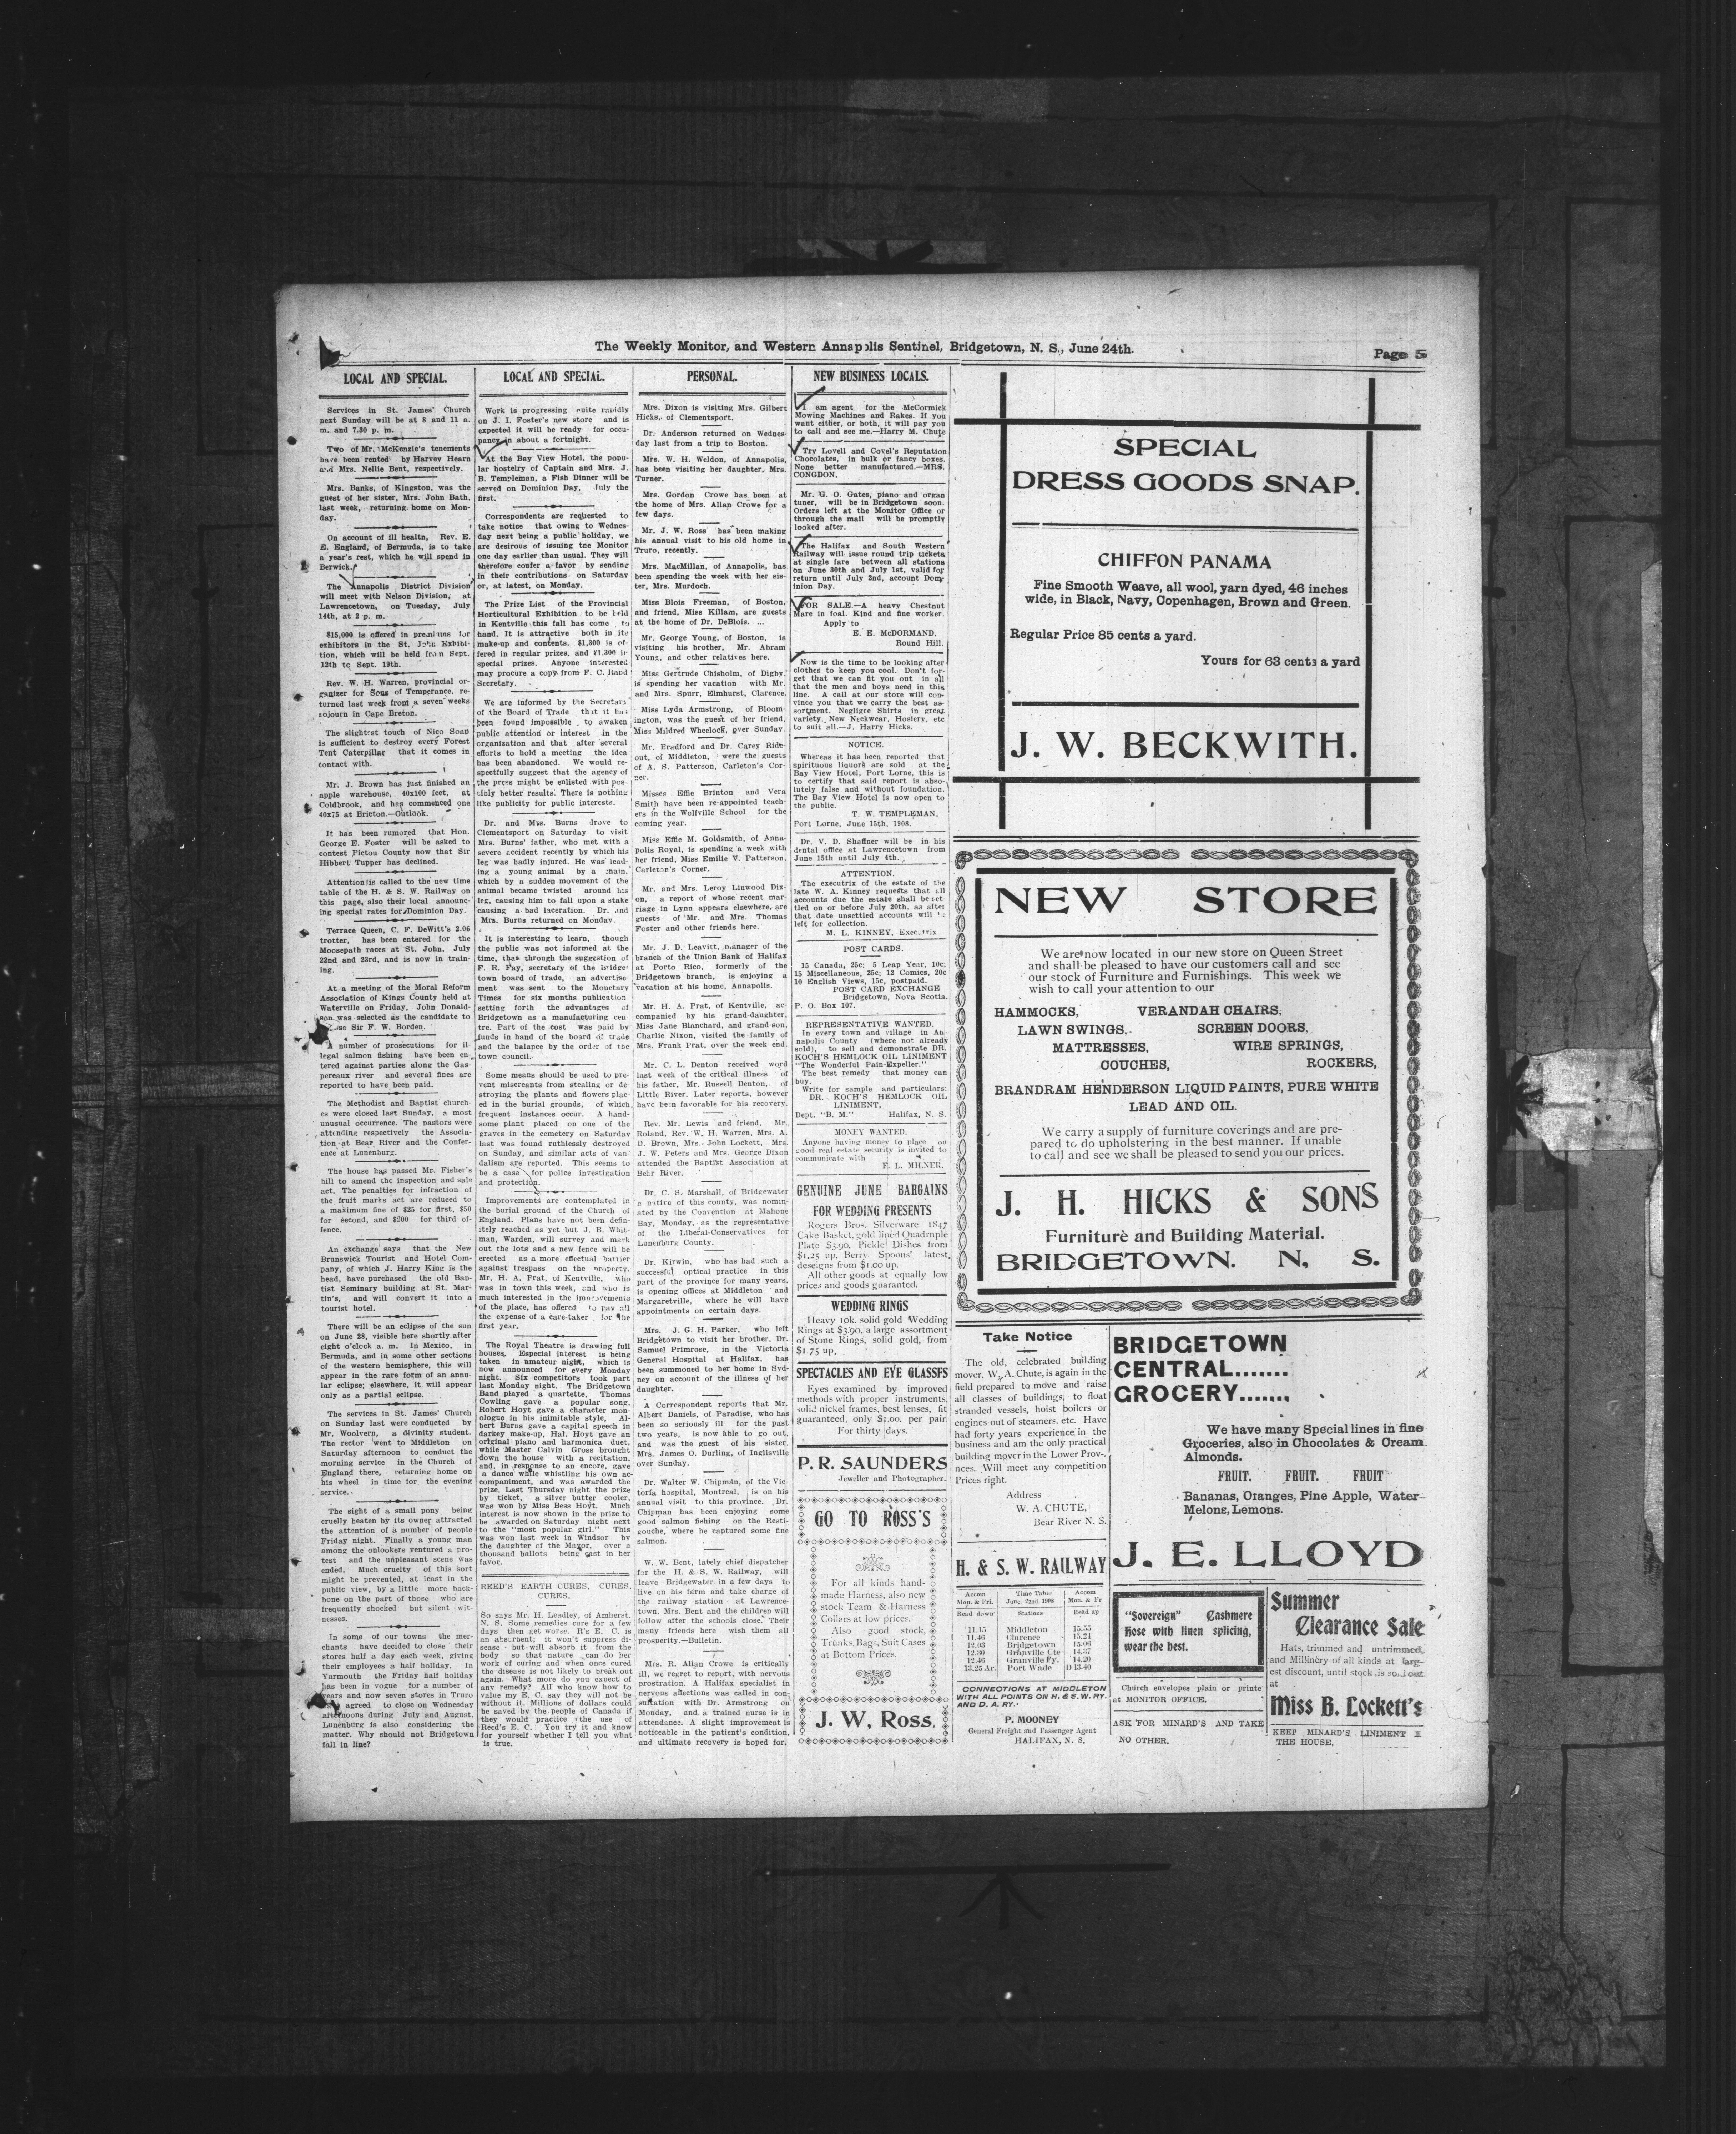 The Weekly Monitor, and Western Annapolis Sentinel, Bridgetown, N. S., June 24th.
Page 5
LOCAL AND SPECIAL.
Services in St. James' Church
next Sunday will be at 8 and 11 a.
m. and 7.30 p. m.
Two of Mr. McKenzie's tenements
have been rented by Harvey Hearn
and Mrs. Nellie Bent, respectively.
Mrs. Banks, of Kingston, was the
guest of her sister, Mrs. John Bath,
last week, returning home on Mon-
day.
On account of ill health, Rev. E.
E. England, of Bermuda, is to take
a year's rest, which he will spend in
Berwick.
The Annapolis District Division
will meet with Nelson Division, at
Lawrencetown, on Tuesday, July
14th, at 2 p. m.
$15,000 is offered in premiums for
exhibitors in the St. John Exhibi-
tion, which will be held from Sept.
12th to Sept. 19th.
Rev. W. H. Warren, provincial or-
ganizer for Sons of Temperance, re-
turned last week from a seven weeks
sojourn in Cape Breton.
The slightest touch of Nico Soap
is sufficient to destroy every Forest
Tent Caterpillar that it comes in
contact with.
Mr. J. Brown has just finished an
apple warehouse, 40x100 feet, at
Coldbrook, and has commenced one
40x75 at Bricton.—Outlook.
It has been rumored that Hon.
George E. Foster will be asked to
contest Pictou County now that Sir
Hibbert Tupper has declined.
Attention is called to the new time
table of the H. & S. W. Railway on
this page, also their local announc-
ing special rates for Dominion Day.
Terrace Queen, C. F. DeWitt's 2.06
trotter, has been entered for the
Moosepath races at St. John, July
22nd and 23rd, and is now in train-
ing.
At a meeting of the Moral Reform
Association of Kings County held at
Waterville on Friday, John Donald-
son was selected as the candidate to
Sir F. W. Borden.
A number of prosecutions for il-
legal salmon fishing have been en-
tered against parties along the Gas-
pereaux river and several fines are
reported to have been paid.
The Methodist and Baptist church-
es were closed last Sunday, a most
unusual occurrence. The pastors were
attending respectively the Associa-
tion at Bear River and the Confer-
ence at Lunenburg.
The house has passed Mr. Fisher's
bill to amend the inspection and sale
act. The penalties for infraction of
the fruit marks act are reduced to
a maximum fine of $25 for first, $50
for second, and $200 for third of-
fence.
An exchange says that the New
Brunswick Tourist and Hotel Com-
pany, of which J. Harry King is the
head, have purchased the old Bap-
tist Seminary building at St. Mar-
tin's, and will convert it into a
tourist hotel.
There will be an eclipse of the sun
on June 28, visible here shortly after
eight o'clock a. m. In Mexico, in
Bermuda, and in some other sections
of the western hemisphere, this will
appear in the rare form of an annu-
lar eclipse; elsewhere, it will appear
only as a partial eclipse.
The services in St. James' Church
on Sunday last were conducted by
Mr. Woolvern, a divinity student.
The rector went to Middleton on
Saturday afternoon to conduct the
morning service in the Church of
England there, returning home on
his wheel in time for the evening
service.
The sight of a small pony being
cruelly beaten by its owner attracted
the attention of a number of people
Friday night. Finally a young man
among the onlookers ventured a pro-
test and the unpleasant scene was
ended. Much cruelty of this sort
might be prevented, at least in the
public view, by a little more back-
bone on the part of those who are
frequently shocked but silent wit-
nesses.
In some of our towns the mer-
chants have decided to close their
stores half a day each week, giving
their employees a half holiday. In
Yarmouth the Friday half holiday
has been in vogue for a number of
years and now seven stores in Truro
agreed to close on Wednesday
afternoons during July and August.
Lunenburg is also considering the
matter. Why should not Bridgetown
fall in line?
LOCAL AND SPECIAL.
Work is progressing quite rapidly
on J. I. Foster's new store and is
expected it will be ready for occu-
pancy in about a fortnight.
At the Bay View Hotel, the popu-
lar hostelry of Captain and Mrs. J.
B. Templeman, a Fish Dinner will be
served on Dominion Day, July the
first.
Correspondents are requested to
take notice that owing to Wednes-
day next being a public holiday, we
are desirous of issuing the Monitor
one day earlier than usual. They will
therefore confer a favor by sending
in their contributions on Saturday
or, at latest, on Monday.
The Prize List of the Provincial
Horticultural Exhibition to be held
in Kentville this fall has come to
hand. It is attractive both in its
make-up and contents. $1,300 is of-
fered in regular prizes, and $1,300 in
special prizes. Anyone interested
may procure a copy from F. C. Rand
Secretary.
We are informed by the Secretary
of the Board of Trade that it has
been found impossible to awaken
public attention or interest in the
organization and that after several
efforts to hold a meeting the idea
has been abandoned. We would re-
spectfully suggest that the agency of
the press might be enlisted with pos-
sibly better results. There is nothing
like publicity for public interests.
Dr. and Mrs. Burns drove to
Clementsport on Saturday to visit
Mrs. Burns' father, who met with a
severe accident recently by which his
leg was badly injured. He was lead-
ing a young animal by a chain,
which by a sudden movement of the
animal became twisted around his
leg, causing him to fall upon a stake
causing a bad laceration. Dr. and
Mrs. Burns returned on Monday.
It is interesting to learn, though
the public was not informed at the
time, that through the suggestion of
F. R. Fay, secretary of the Bridge-
town board of trade, an advertise-
ment was sent to the Monetary
Times for six months publication
setting forth the advantages of
Bridgetown as a manufacturing cen-
tre. Part of the cost was paid by
funds in hand of the board of trade
and the balance by the order of the
town council.
Some means should be used to pre-
vent miscreants from stealing or de-
stroying the plants and flowers plac-
ed in the burial grounds, of which
frequent instances occur. A hand-
some plant placed on one of the
graves in the cemetery on Saturday
last was found ruthlessly destroyed
on Sunday, and similar acts of van-
dalism are reported. This seems to
be a case for police investigation
and protection.
Improvements are contemplated in
the burial ground of the Church of
England. Plans have not been defin-
itely reached as yet but J. B. Whit-
man, Warden, will survey and mark
out the lots and a new fence will be
erected as a more effectual barrier
against trespass on the property.
Mr. H. A. Prat, of Kentville, who
was in town this week, and who is
much interested in the improvements
of the place, has offered to pay all
the expense of a care-taker for the
first year.
The Royal Theatre is drawing full
houses, Especial interest is being
taken in amateur night, which is
now announced for every Monday
night. Six competitors took part
last Monday night. The Bridgetown
Band played a quartette, Thomas
Cowling gave a popular song,
Robert Hoyt gave a character mon-
ologue in his inimitable style, Al-
bert Burns gave a capital speech in
darkey make-up, Hal. Hoyt gave an
original piano and harmonica duet,
while Master Calvin Gross brought
down the house with a recitation,
and, in response to an encore, gave
a dance while whistling his own ac-
compainment, and was awarded the
prize. Last Thursday night the prize
by ticket, a silver butter cooler,
was won by Miss Bess Hoyt. Much
interest is now shown in the prize to
be awarded on Saturday night next
to the "most popular girl." This
was won last week in Windsor by
the daughter of the Mayor, over a
thousand ballots being cast in her
favor.
REED'S EARTH CURES, CURES,
CURES.
So says Mr. H. Leadley, of Amherst,
N. S. Some remedies cure for a few
days then get worse. R's E. C. is
an absorbent; it won't suppress di-
sease but will absorb it from the
body so that nature can do her
work of curing and when once cured
the disease is not likely to break out
again. What more do you expect of
any remedy? All who know how to
value my E. C. say they will not be
without it. Millions of dollars could
be saved by the people of Canada if
they would practice the use of
Reed's E. C. You try it and know
for yourself whether I tell you what
is true.
PERSONAL.
Mrs. Dixon is visiting Mrs. Gilbert
Hicks, of Clementsport.
Dr. Anderson returned on Wednes-
day last from a trip to Boston.
Mrs. W. H. Weldon, of Annapolis,
has been visiting her daughter, Mrs.
Turner.
Mrs. Gordon Crowe has been at
the home of Mrs. Allan Crowe for a
few days.
Mr. J. W. Ross has been making
his annual visit to his old home in
Truro, recently.
Mrs. MacMillan, of Annapolis, has
been spending the week with her sis-
ter, Mrs. Murdoch.
Miss Blois Freeman, of Boston,
and friend, Miss Killam, are guests
at the home of Dr. DeBlois. ...
Mr. George Young, of Boston, is
visiting his brother, Mr. Abram
Young, and other relatives here.
Miss Gertrude Chisholm, of Digby,
is spending her vacation with Mr.
and Mrs. Spurr, Elmhurst, Clarence.
Miss Lyda Armstrong, of Bloom-
ington, was the guest of her friend,
Miss Mildred Wheelock, over Sunday.
Mr. Bradford and Dr. Carey Ride-
out, of Middleton, were the guests
of A. S. Patterson, Carleton's Cor-
ner.
Misses Effie Brinton and Vera
Smith have been re-appointed teach-
ers in the Wolfville School for the
coming year.
Miss Effie M. Goldsmith, of Anna-
polis Royal, is spending a week with
her friend, Miss Emilie V. Patterson,
Carleton's Corner.
Mr. and Mrs. Leroy Linwood Dix-
on, a report of whose recent mar-
riage in Lynn appears elsewhere, are
guests of Mr. and Mrs. Thomas
Foster and other friends here.
Mr. J. D. Leavitt, manager of the
branch of the Union Bank of Halifax
at Porto Rico, formerly of the
Bridgetown branch, is enjoying a
vacation at his home, Annapolis.
Mr. H. A. Prat, of Kentville, ac-
companied by his grand-daughter,
Miss Jane Blanchard, and grand-son,
Charlie Nixon, visited the family of
Mrs. Frank Prat, over the week end.
Mr. C. L. Denton received word
last week of the critical illness of
his father, Mr. Russell Denton, of
Little River. Later reports, however
have been favorable for his recovery.
Rev. Mr. Lewis and friend, Mr.
Roland, Rev. W. H. Warren, Mrs. A.
D. Brown, Mrs. John Lockett, Mrs.
J. W. Peters and Mrs. George Dixon
attended the Baptist Association at
Bear River.
Dr. C. S. Marshall, of Bridgewater
a native of this county, was nomin-
ated by the Convention at Mahone
Bay, Monday, as the representative
of the Liberal-Conservatives for
Lunenburg County.
Dr. Kirwin, who has had such a
successful optical practice in this
part of the province for many years,
is opening offices at Middleton and
Margaretville, where he will have
appointments on certain days.
Mrs. J. G. H. Parker, who left
Bridgetown to visit her brother, Dr.
Samuel Primrose, in the Victoria
General Hospital at Halifax, has
been summoned to her home in Syd-
ney on account of the illness of her
daughter.
A Correspondent reports that Mr.
Albert Daniels, of Paradise, who has
been so seriously ill for the past
two years, is now able to go out,
and was the guest of his sister,
Mrs. James O. Durling, of Inglisville
over Sunday.
Dr. Walter W. Chipman, of the Vic-
toria hospital, Montreal, is on his
annual visit to this province. Dr.
Chipman has been enjoying some
good salmon fishing on the Resti-
gouche, where he captured some fine
salmon.
W. W. Bent, lately chief dispatcher
for the H. & S. W. Railway, will
leave Bridgewater in a few days to
live on his farm and take charge of
the railway station at Lawrence-
town. Mrs. Bent and the children will
follow after the schools close. Their
many friends here wish them all
prosperity.—Bulletin.
Mrs. R. Allan Crowe is critically
ill, we regret to report, with nervous
prostration. A Halifax specialist in
nervous affections was called in con-
sultation with Dr. Armstrong on
Monday, and a trained nurse is in
attendance. A slight improvement is
noticeable in the patient's condition,
and ultimate recovery is hoped for.
NEW BUSINESS LOCALS.
I am agent for the McCormick
Mowing Machines and Rakes. If you
want either, or both, it will pay you
to call and see me.—Harry M. Chute
Try Lovell and Covel's Reputation
Chocolates, in bulk or fancy boxes.
None better manufactured.—MRS.
CONGDON.
Mr. G. O. Gates, piano and organ
tuner, will be in Bridgetown soon.
Orders left at the Monitor Office or
through the mail will be promptly
looked after.
The Halifax and South Western
Railway will issue round trip tickets
at single fare between all stations
on June 30th and July 1st, valid for
return until July 2nd, account Dom-
inion Day.
FOR SALE.—A heavy Chestnut
Mare in foal. Kind and fine worker.
Apply to
E. E. McDORMAND,
Round Hill.
Now is the time to be looking after
clothes to keep you cool. Don't for-
get that we can fit you out in all
that the men and boys need in this
line. A call at our store will con-
vince you that we carry the best as-
sortment. Negligee Shirts in great
variety. New Neckwear, Hosiery, etc
to suit all.—J. Harry Hicks.
NOTICE.
Whereas it has been reported that
spirituous liquors are sold at the
Bay View Hotel, Port Lorne, this is
to certify that said report is abso-
lutely false and without foundation.
The Bay View Hotel is now open to
the public.
T. W. TEMPLEMAN.
Port Lorne, June 15th, 1908.
Dr. V. D. Shaffner will be in his
dental office at Lawrencetown from
June 15th until July 4th.
ATTENTION.
The executrix of the estate of the
late W. A. Kinney requests that all
accounts due the estate shall be set-
tled on or before July 20th, as after
that date unsettled accounts will be
left for collection.
M. L. KINNEY, Executrix
POST CARDS.
15 Canada, 25c; 5 Leap Year, 10c;
15 Miscellaneous, 25c; 12 Comics, 20c
10 English Views, 15c, postpaid.
POST CARD EXCHANGE
Bridgetown, Nova Scotia.
P. O. Box 107.
REPRESENTATIVE WANTED.
In every town and village in An-
napolis County (where not already
sold), to sell and demonstrate DR.
KOCH'S HEMLOCK OIL LINIMENT
"The Wonderful Pain-Expeller."
The best remedy that money can
buy.
Write for sample and particulars:
DR. KOCH'S HEMLOCK OIL
LINIMENT,
Dept. "B. M." Halifax, N. S.
MONEY WANTED.
Anyone having money to place on
good real estate security is invited to
communicate with
F. L. MILNER.
GENUINE JUNE BARGAINS
FOR WEDDING PRESENTS
Rogers Bros. Silverware 1847
Cake Basket, gold lined Quadruple
Plate $3.90, Pickle Dishes from
$1.25 up, Berry Spoons' latest
designs from $1.00 up.
All other goods at equally low
prices and goods guranted.
WEDDING RINGS
Heavy 10k. solid gold Wedding
Rings at $3.90, a large assortment
of Stone Rings, solid gold, from
$1.75 up.
SPECTACLES AND EYE GLASSFS
Eyes examined by improved
methods with proper instruments,
solid nickel frames, best lenses, fit
guaranteed, only $1.00. per pair.
For thirty days.
P. R. SAUNDERS
Jeweller and Photographer.
GO TO ROSS'S
For all kinds hand-
made Harness, also new
stock Team & Harness
Collars at low prices.
Also good stock,
Trunks, Bags, Suit Cases
at Bottom Prices.
J. W. Ross.
SPECIAL
DRESS GOODS SNAP.
CHIFFON PANAMA
Fine Smooth Weave, all wool, yarn dyed, 46 inches
wide, in Black, Navy, Copenhagen, Brown and Green.
Regular Price 85 cents a yard.
Yours for 63 cents a yard
J. W. BECKWITH.
NEW STORE
We are now located in our new store on Queen Street
and shall be pleased to have our customers call and see
our stock of Furniture and Furnishings. This week we
wish to call your attention to our
HAMMOCKS, VERANDAH CHAIRS,
LAWN SWINGS, SCREEN DOORS,
MATTRESSES, WIRE SPRINGS,
COUCHES, ROCKERS,
BRANDRAM HENDERSON LIQUID PAINTS, PURE WHITE
LEAD AND OIL.
We carry a supply of furniture coverings and are pre-
pared to do upholstering in the best manner. If unable
to call and see we shall be pleased to send you our prices.
J. H. HICKS & SONS
Furniture and Building Material.
BRIDGETOWN. N. S.
Take Notice
The old, celebrated building
mover, W. A. Chute, is again in the
field prepared to move and raise
all classes of buildings, to float
stranded vessels, hoist boilers or
engines out of steamers. etc. Have
had forty years experience in the
business and am the only practical
building mover in the Lower Prov-
nces. Will meet any competition
Prices right.
Address
W. A. CHUTE,
Bear River N. S.
H. & S. W. RAILWAY
Accom Time Table Accom
Mon. & Fri. June. 22nd. 1908 Mon. & Fr
Read down Stations Read up
11.15 Middleton 15.55
11.46 Clarence 15.24
12.03 Bridgetown 15.06
12.30 Granville Cte 14.37
12.46 Granville Fy. 14.20
13.25 Ar. Port Wade D 13.40
CONNECTIONS AT MIDDLETON
WITH ALL POINTS ON H. & S. W. RY.
AND D. A. RY.
P. MOONEY
General Freight and Passenger Agent
HALIFAX, N. S.
BRIDGETOWN
CENTRAL.......
GROCERY.......
We have many Special lines in fine
Groceries, also in Chocolates & Cream
Almonds.
FRUIT. FRUIT. FRUIT
Bananas, Oranges, Pine Apple, Water-
Melons, Lemons.
J. E. LLOYD
"Sovereign" Cashmere
Hose with linen splicing,
wear the best.
Church envelopes plain or printe
at MONITOR OFFICE.
ASK FOR MINARD'S AND TAKE
NO OTHER.
Summer
Clearance Sale
Hats, trimmed and untrimmed,
and Millinery of all kinds at larg-
est discount, until stock is sold out
at
Miss B. Lockett's
KEEP MINARD'S LINIMENT I
THE HOUSE.